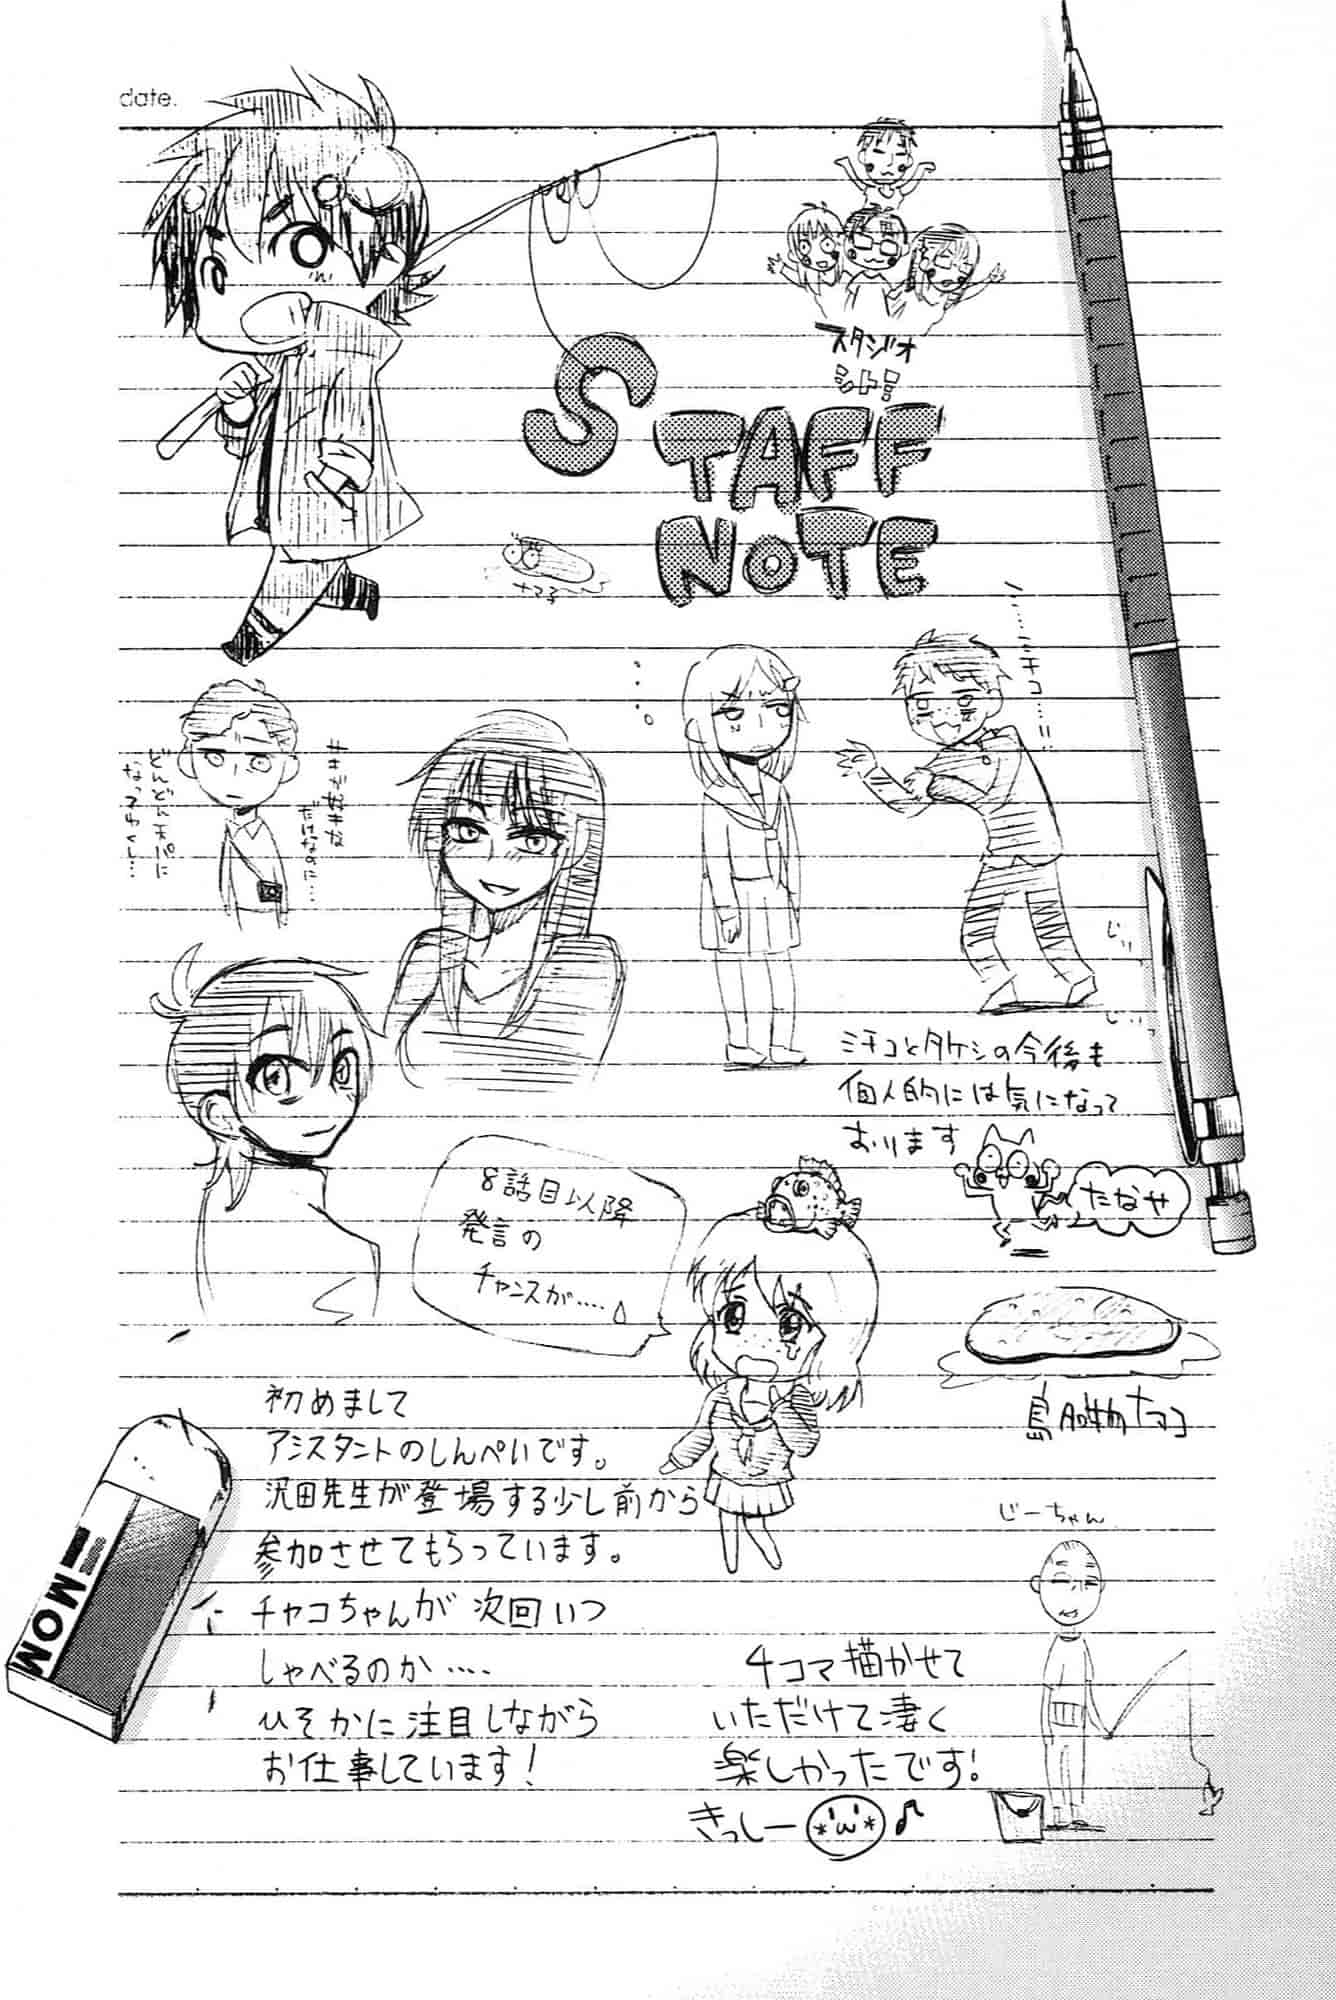 date.
スタジオ
シトミ
STAFF
NOTE
ナマコ
ミチコ……!!
キキがすきな
だけなのに…
どんどん天パに
なってゆく…
じぃ
じぃっ
ミチコとタケシの今後も
個人的には気になって
おります
たなせ
8話目以降
発言の
チャンスが....
島の産物ナマコ
初めまして
アシスタントのしんぺいです。
沢田先生が登場する少し前から
参加させてもらっています。
チャコちゃんが次回いつ
しゃべるのか....
ひそかに注目しながら
お仕事しています!
じーちゃん
4コマ描かせて
いただけて凄く
楽しかったです!
きっしー
MOM